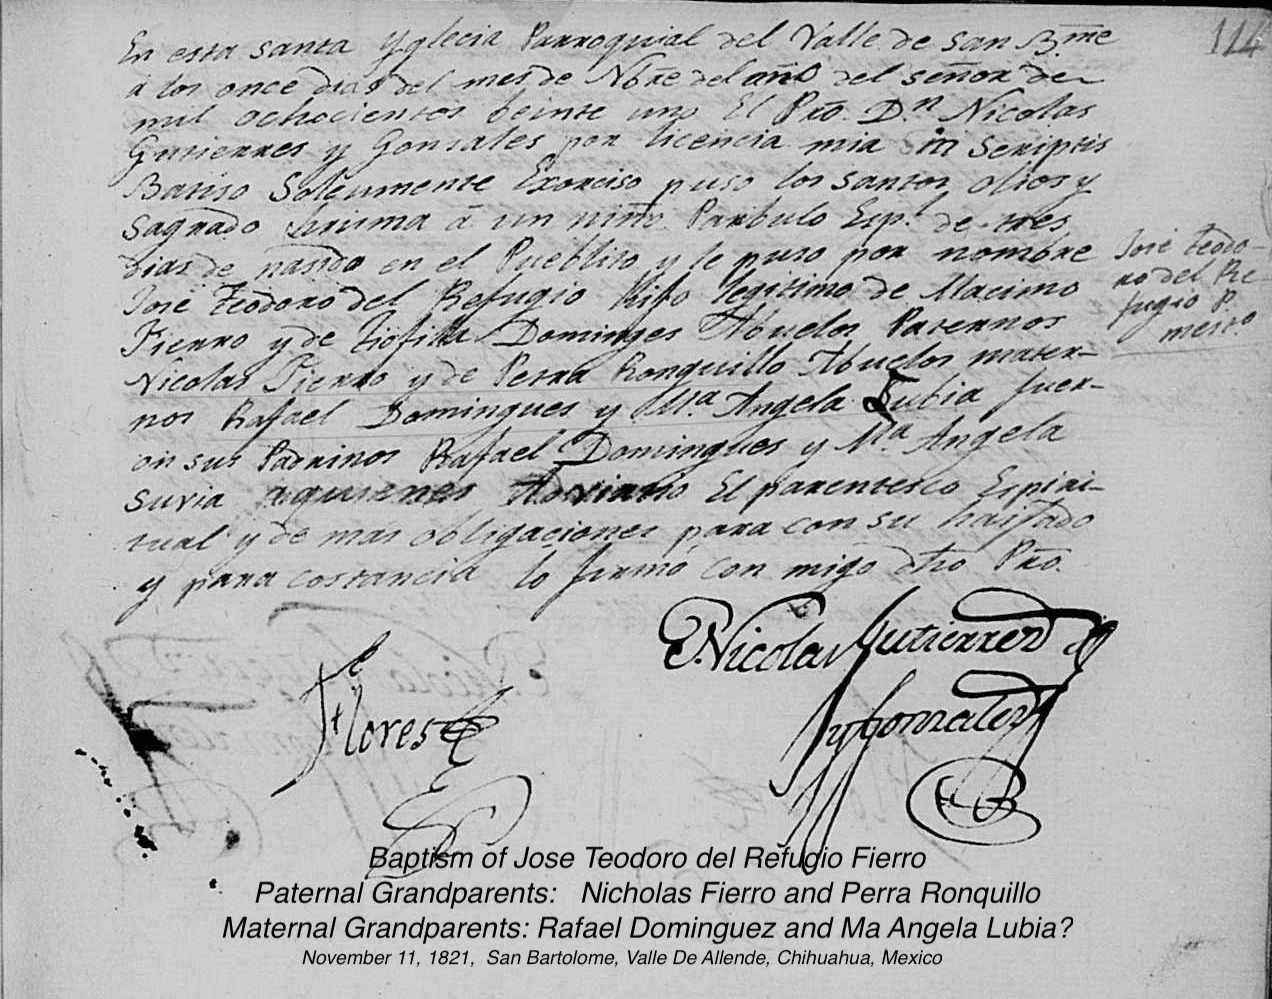 114
En esta santa Yglecia Parroquial del Valle de San B.me
a los once dias del mes de Nbre del año del señor de
mil ochocientos beinte uno El Pro. D.n Nicolas
Gutierres y Gonsales por licencia mia in Scriptis
Batiso Solenmente Exorciso puso los santos olios y
Sagrado Chrisma á un niño Parbulo Esp.l de tres
dias de nasido en el Pueblito y le puso por nombre
José Teodoro del Refugio Hijo legitimo de Macimo
Fierro y de Tiofila Dominges Abuelos Paternos
Nicolas Fierro y de Petra Ronquillo Abuelos mater-
nos Rafael Domingues y Ma. Angela Subia fuer-
on sus Padrinos Rafael Domingues y Ma. Angela
Suvia aquienes El parentesco Espiri-
tual y de mas obligaciones para con su haijado
y para costancia lo firmó con migo dho Pro.
José Teodo-
ro del Re-
fugio P.
Flores
Nicolas Gutierrez
y Gonzalez
Baptism of Jose Teodoro del Refugio Fierro
Paternal Grandparents: Nicholas Fierro and Perra Ronquillo
Maternal Grandparents: Rafael Dominguez and Ma Angela Lubia?
November 11, 1821, San Bartolome, Valle De Allende, Chihuahua, Mexico